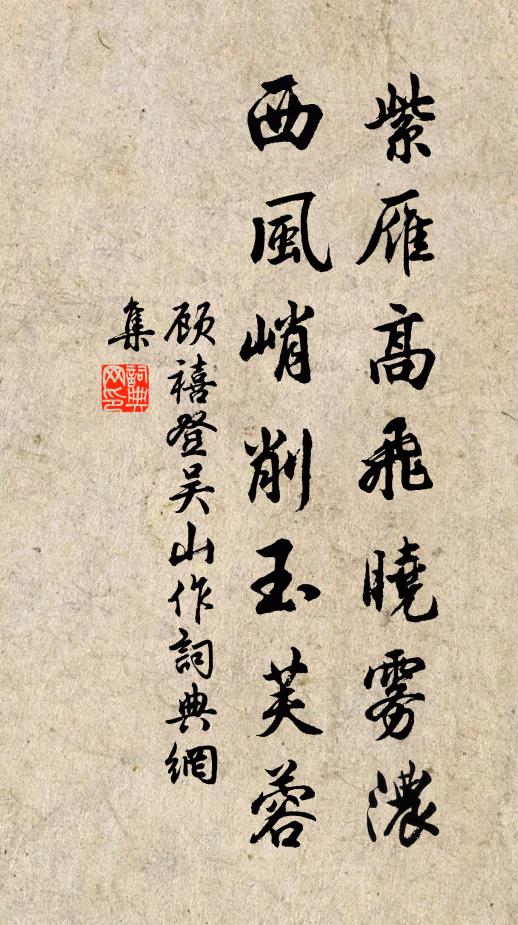 紫雁高飛曉雾濃
西風峭削玉芙蓉
顾禧登吴山作詞典網
集
詞典网印